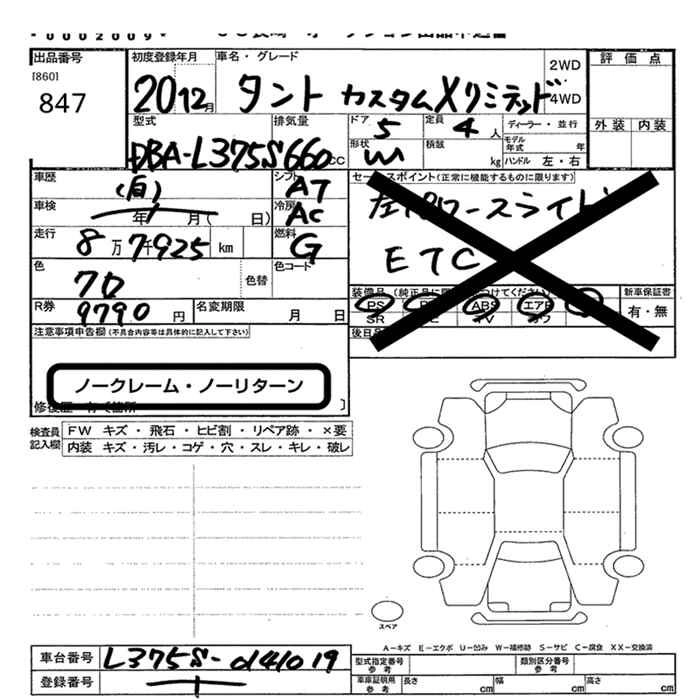 出品番号
[860]
847
初度登録年月
20 12月
車名・グレード
タント カスタムXリミテッド
2WD
・
4WD
評価点
外装 内装
型式
DBA-L375S
排気量
660 CC
ドア 5
定員 4 人
形状 W
積載 kg
ディーラー・並行
モデル年式 年
ハンドル 左・右
車歴 (自)
シフト AT
車検 年 月( 日)
冷房 AC
走行 8万7千925 km
燃料 G
色 クロ
色替
色コード
R券 9790 円
名変期限 月 日
セールスポイント(正常に機能するものに限ります)
左パワースライド
ETC
装備品
PS
ABS
エアB
SR
TV
新車保証書
有・無
注意事項申告欄(不具合内容等は具体的に記入して下さい)
ノークレーム・ノーリターン
検査員記入欄
FW キズ・飛石・ヒビ割・リペア跡・×要
内装 キズ・汚レ・コゲ・穴・スレ・キレ・破レ
スペア
A-キズ E-エクボ U-凹み W-補修跡 S-サビ C-腐食 XX-交換済
車台番号 L375S-0141019
登録番号
型式指定番号 参考
類別区分番号 参考
車庫証明用 参考
長さ cm
幅 cm
高さ cm